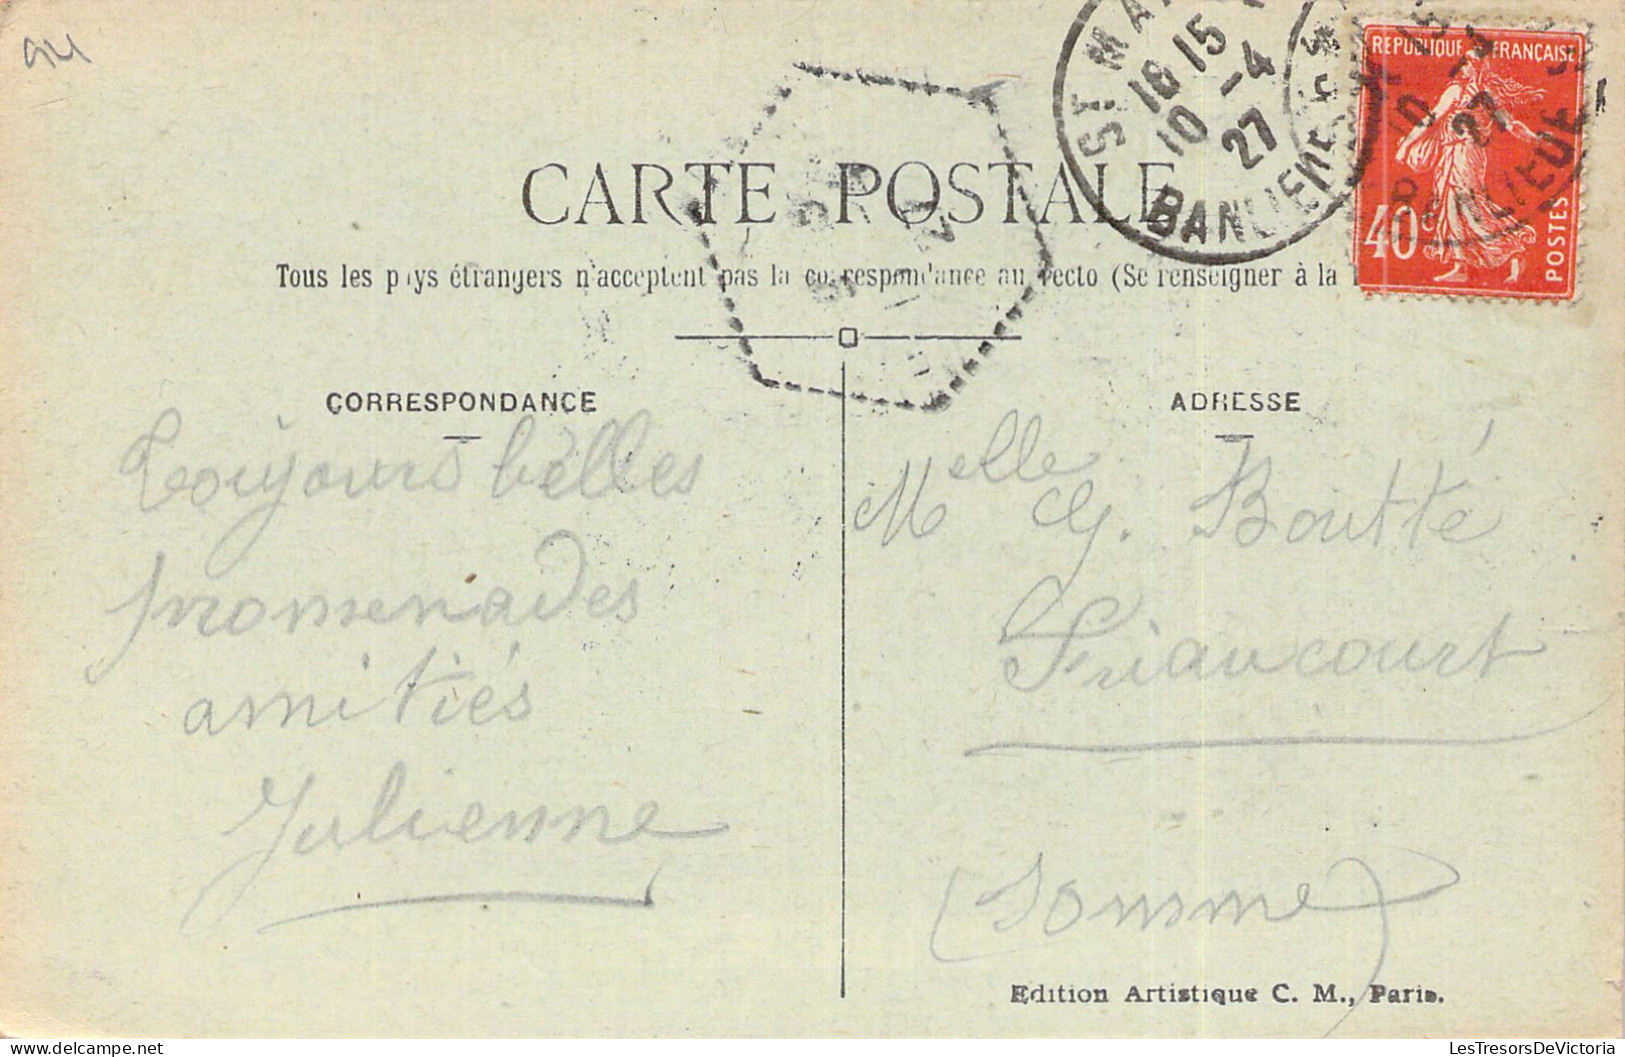 94
ST MA
16 15
10 -4
27
BANLIEUE
REPUBLIQUE FRANÇAISE
10 -4
27
BANLIEUE
40c
POSTES
CARTE POSTALE
Tous les pays étrangers n'acceptent pas la correspondance au recto (Se renseigner à la
CORRESPONDANCE
Toujours belles
promenades
amitiés
Julienne
ADRESSE
Melle G. Boutté
Friaucourt
(Somme)
Edition Artistique C. M., Paris.
LesTresorsDeVictoria